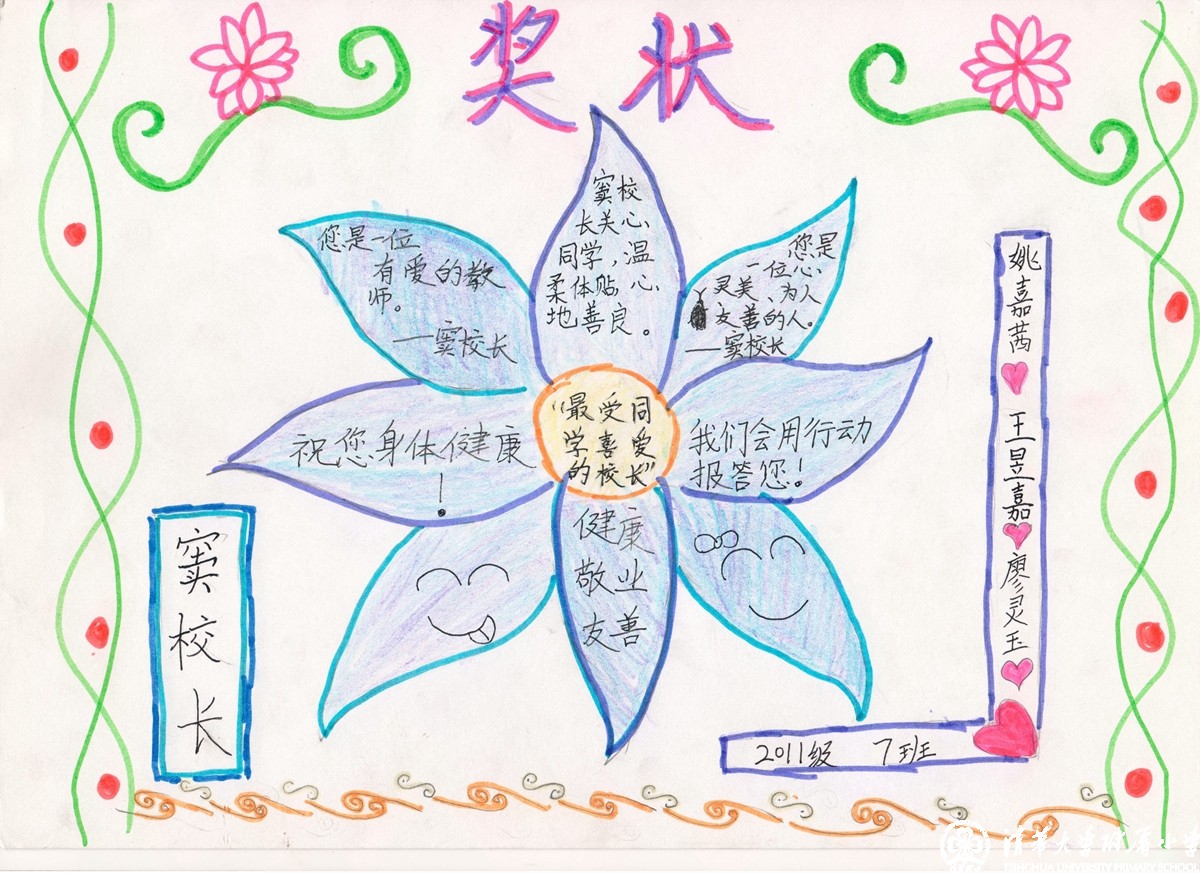 奖状
您是一位
有爱的教
师。
——窦校长
窦校
长关心
同学,温
柔体贴、心
地善良。
您是
一位心
灵美、为人
友善的人。
——窦校长
祝您身体健康
!
“最受同
学喜爱
的校长”
我们会用行动
报答您!
健康
敬业
友善
窦校长
姚嘉茜
王昱嘉
廖灵玉
2011级 7班
清华大学附属小学
TSINGHUA UNIVERSITY PRIMARY SCHOOL